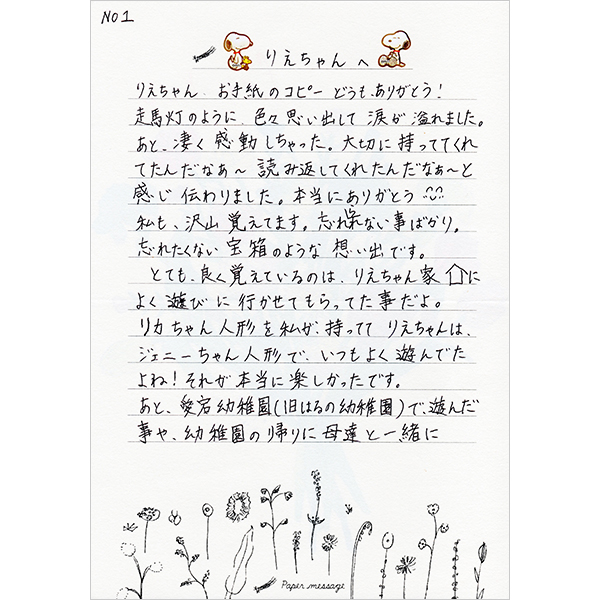 NO1
りえちゃんへ
りえちゃん お手紙のコピー どうも、ありがとう!
走馬灯のように、色々思い出して 涙が 溢れました。
あと、凄く感動しちゃった。大切に持っててくれ
てたんだなぁ〜 読み返してくれたんだなぁ〜と
感じ伝わりました。本当にありがとう
私も、沢山覚えてます。忘れられない事ばかり。
忘れたくない宝箱のような想い出です。
とても、良く覚えているのは、りえちゃん家に
よく遊びに行かせてもらってた事だよ。
リカちゃん人形を私が、持ってて りえちゃんは、
ジェニーちゃん人形で、いつもよく遊んでた
よね!それが本当に楽しかったです。
あと、愛宕幼稚園(旧はるの幼稚園)で、遊んだ
事や、幼稚園の帰りに母達と一緒に
Paper message